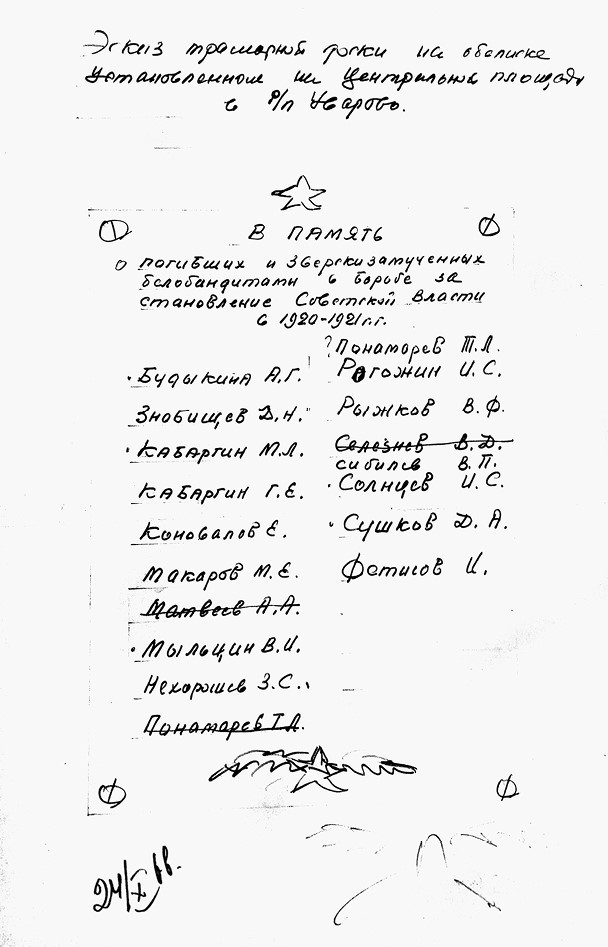 Эскиз мраморной доски на обелиске
установленном на Центральной площади
в р/п Уварово.
В ПАМЯТЬ
о погибших и зверски замученных
белобандитами в борьбе за
становление Советской Власти
в 1920-1921 г.г.
Будыкина А.Г.
Знобищев Д.Н.
Кабаргин М.Л.
Кабаргин Г.Е.
Коновалов Е.
Макаров М.Е.
Матвеев А.А.
Мыльцин В.И.
Нехорошев З.С.
Понамарев Т.Л.
? Понаморев Т.Л.
Рогожин И.С.
Рыжков В.Ф.
Селезнев В.Д.
Сибилев В.П.
Солнцев И.С.
Сушков Д.А.
Фетисов И.
24/X 68.